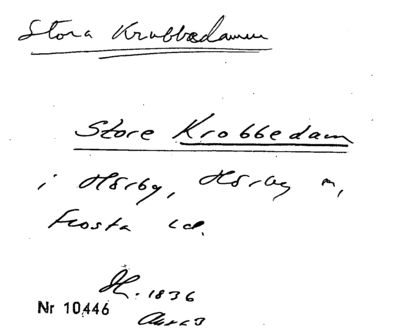 Stora Krobbedamm
Store Krobbedam
i Hörby, Hörby s,
Frosta hd.
H. 1836
Nr 10446